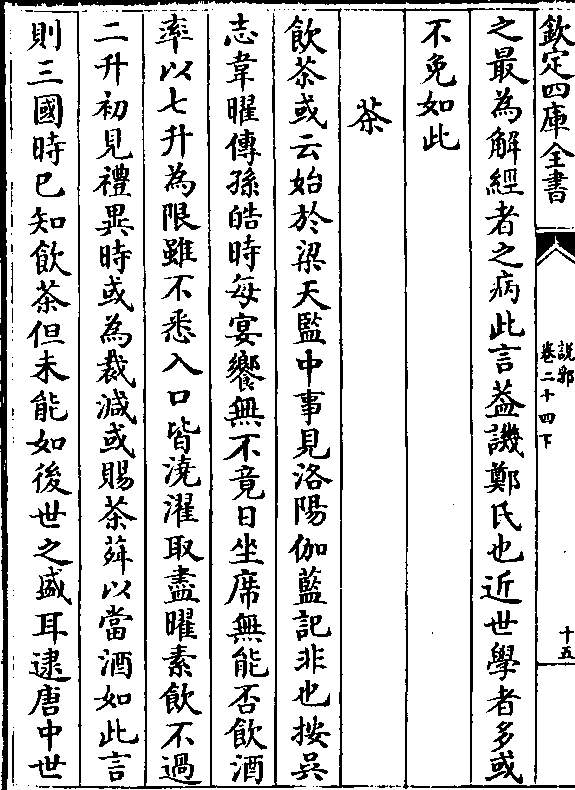 欽定四庫全書
說郛
卷二十四下
十五
之最為解經者之病此言葢譏鄭氏也近世學者多或
不免如此
茶
飲茶或云始於梁天監中事見洛陽伽藍記非也按吳
志韋曜傳孫皓時每宴饗無不竟日坐席無能否飲酒
率以七升為限雖不悉入口皆澆濯取盡曜素飲不過
二升初見禮異時或為裁減或賜茶荈以當酒如此言
則三國時已知飲茶但未能如後世之盛耳逮唐中世